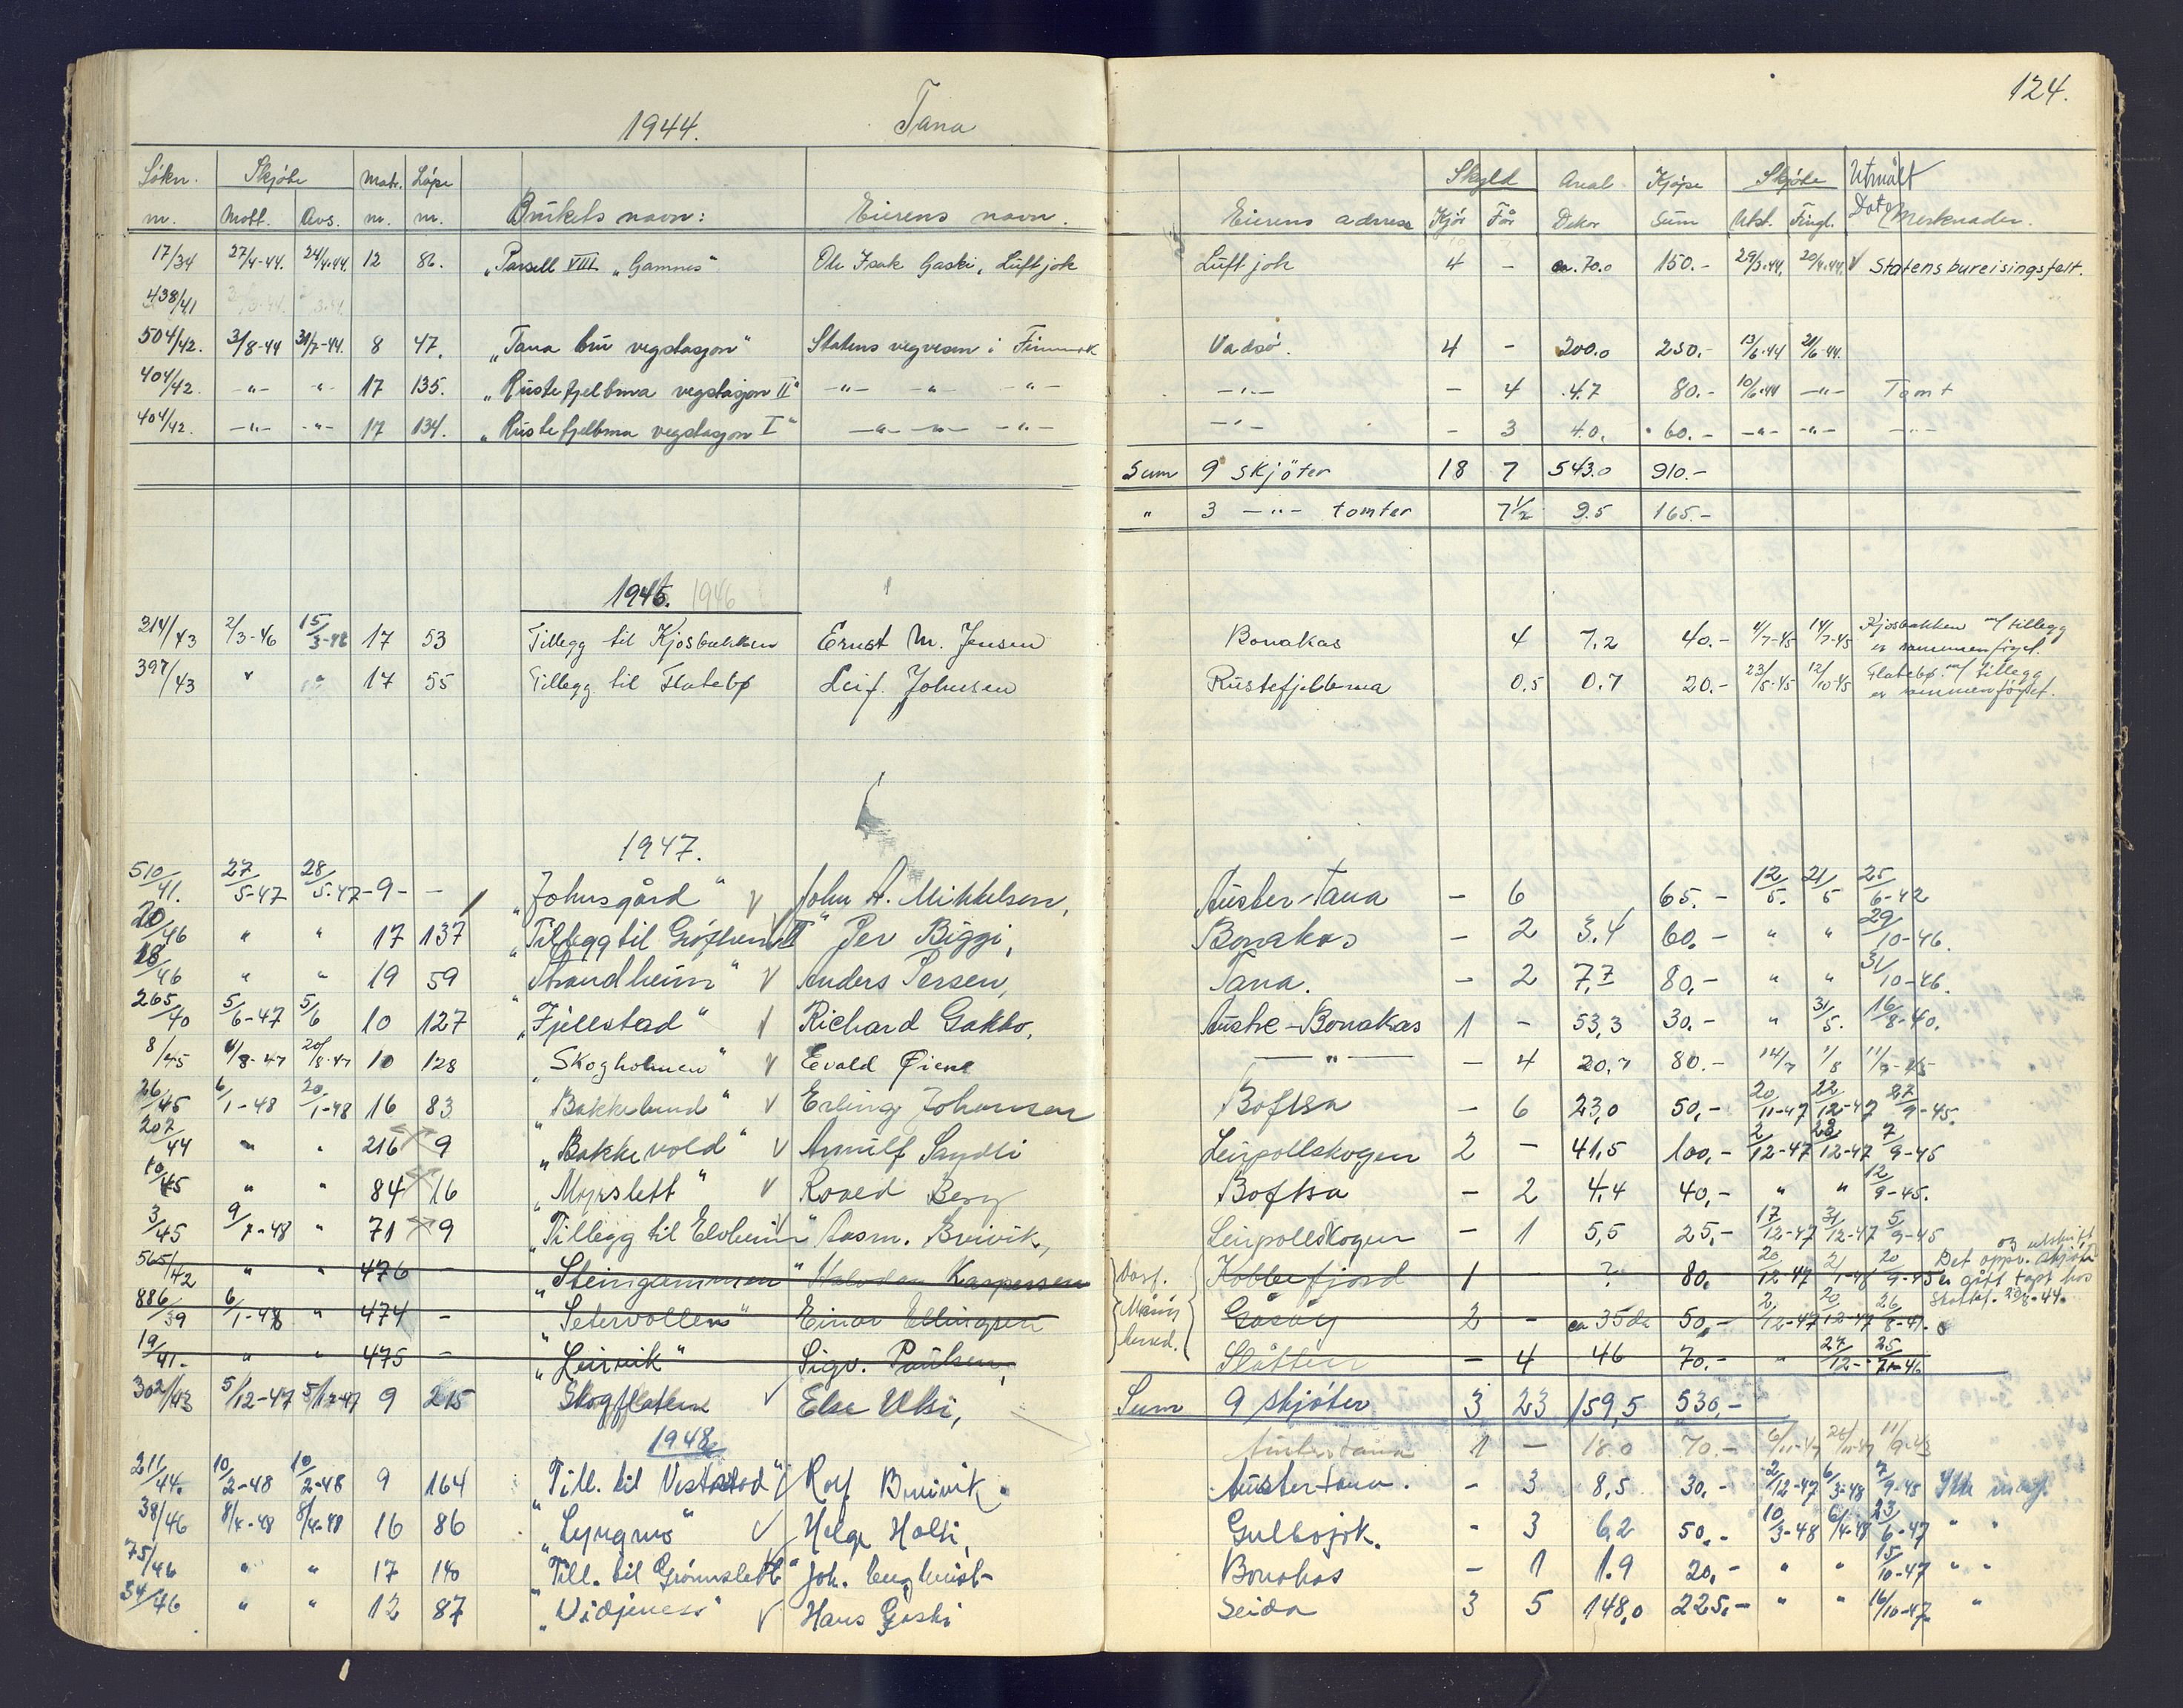 124.
1944. Tana
Søkn. nr. Skjøte Mott. Avs. Matr. nr. Löpe nr. Brukets navn: Eierens navn. Eierens adresse Skyld Kjör Får Areal Dekar Kjöpe sum Skjöte Utst. Tingl. Utmålt Dato Merknader.
17/34 27/4-44. 24/4-44. 12 86. "Parsell VIII "Gamnes" Ole Isak Gaski, Luftjok Luftjok 4 - ca. 70.0 150.- 29/3-44. 20/4-44. V Statens bureisingsfelt.
438/41
504/42. 3/8-44 31/7-44. 8 47. "Tana bru vegstasjon" Statens vegvesen i Finnmark Vadsö. 4 - 200.0 250.- 13/6-44 21/6-44.
404/42. -"- -"- 17 135. "Rustefjelbma vegstasjon II" -"- -"- -"- -"- - 4 4.7 80.- 10/6-44 -"- Tomt
404/42. -"- -"- 17 134. "Rustefjelbma vegstasjon I" -"- -"- -"- -"- - 3 4.0. 60.- -"- -"- -"-
Sum 9 skjöter 18 7 543.0 910.-
" 3 -"- tomter 7 1/2 9.5 165.-
1945. 1946
314/43 2/3-46 15/3-46 17 53 Tillegg til Kjosbakken Ernst M. Jensen Bonakas 4 7,2 40.- 4/7-45 14/7-45 Kjosbakken m/ tillegg er sammenföyet.
397/43 " " 17 55 Tillegg til Flatebø Leif. Johnsen Rustefjelbma 0.5 0.7 20.- 23/5-45 12/10-45 Flatebø m/ tillegg er sammenföyet.
1947.
510/41. 27/5-47 28/5-47 -9- - "Johnsgård" V John A. Mikkelsen, Auster-Tana - 6 65.- 12/5. 21/5 25/6-42
20/46 " " 17 137 "Tillegg til II" Per Biggi, Bonakas - 2 3.4 60.- " " 29/10-46.
18/46 " " 19 59 "Strandheim" V Anders Persen, Tana. - 2 7,7 80,- " " 31/10-46.
265/40 5/6-47 5/6 10 127 "Fjellstad" Richard Gakko, Austre-Bonakas 1 - 53,3 30.- " 31/5. 16/8-40.
8/45 4/8-47 20/8-47 10 128 "Skogholmen" V Evald Øiene -"- - 4 20.7 80.- 14/7 1/8 11/9-45
26/45 6/1-48 20/1-48 16 83 "Bakkelund" V Erling Johansen Boftsa - 6 23,0 50,- 20/11-47 22/12-47 27/9-45.
207/44 " " 216 9 "Bakkevold" V Arnulf Sandli Leirpollskogen 2 - 41,5 100,- 2/12-47 23/12-47 7/9-45
10/45 " " 84 16 "Myrslett" V Roald Berg Boftsa - 2 4,4 40,- " " 12/9-45.
3/45 9/1-48 " 71 9 "Tillegg til Elvheim" Aasm. Breivik, Leirpollskogen - 1 5,5 25,- 17/12-47 31/12-47 5/9-45
565/42 " " 476 - "Steingammen" Halvdan Kaspersen Kobbefjord 1 ? 80. 20/12-47 2/1-48 20/9-45 Det oppr. skjöte og utskrift er gått tapt hos skattef. 23/8-44.
886/39 6/1-48 " 474 - "Setervollen" Einar Ellingsen Gåsøy 2 - ca 35 da 50,- 2/12-47 20/12-47 26/8-41.
19/41. " " 475 - "Leirvik" Sigv. Paulsen, Slåtten - 4 46 70.- " 27/12-" 25/7-46
Måsøy herred.
302/43 5/12-47 5/12-47 9 215 Skogflaten V Else Utsi,
Sum 9 skjöter 3 23 159,5 530,-
Austertana 1 - 18.0 70.- 6/11-47 26/11-47 11/9-43
1948
211/44. 10/2-48 10/2-48 9 164 "Till. til Vestastad" Rolf Breivik. Auster-tana. - 3 8,5 30,- 2/12-47 6/3-48 7/9-45
38/46 8/4-48 8/4-48 16 86 "Lyngnes" V Helge Holti, Gulbojok. - 3 6,2 50,- 10/3-48 6/4-48 23/6-47 " "
75/46 " " 17 140 "Till. til Grönnslett" Joh. Bonakas - 1 1.9 20,- " " 15/10-47 " "
34/46 " " 12 87 "Vidjenes" V Hans Gaski Seida 3 5 148,0 225,- " " 16/10-47 "